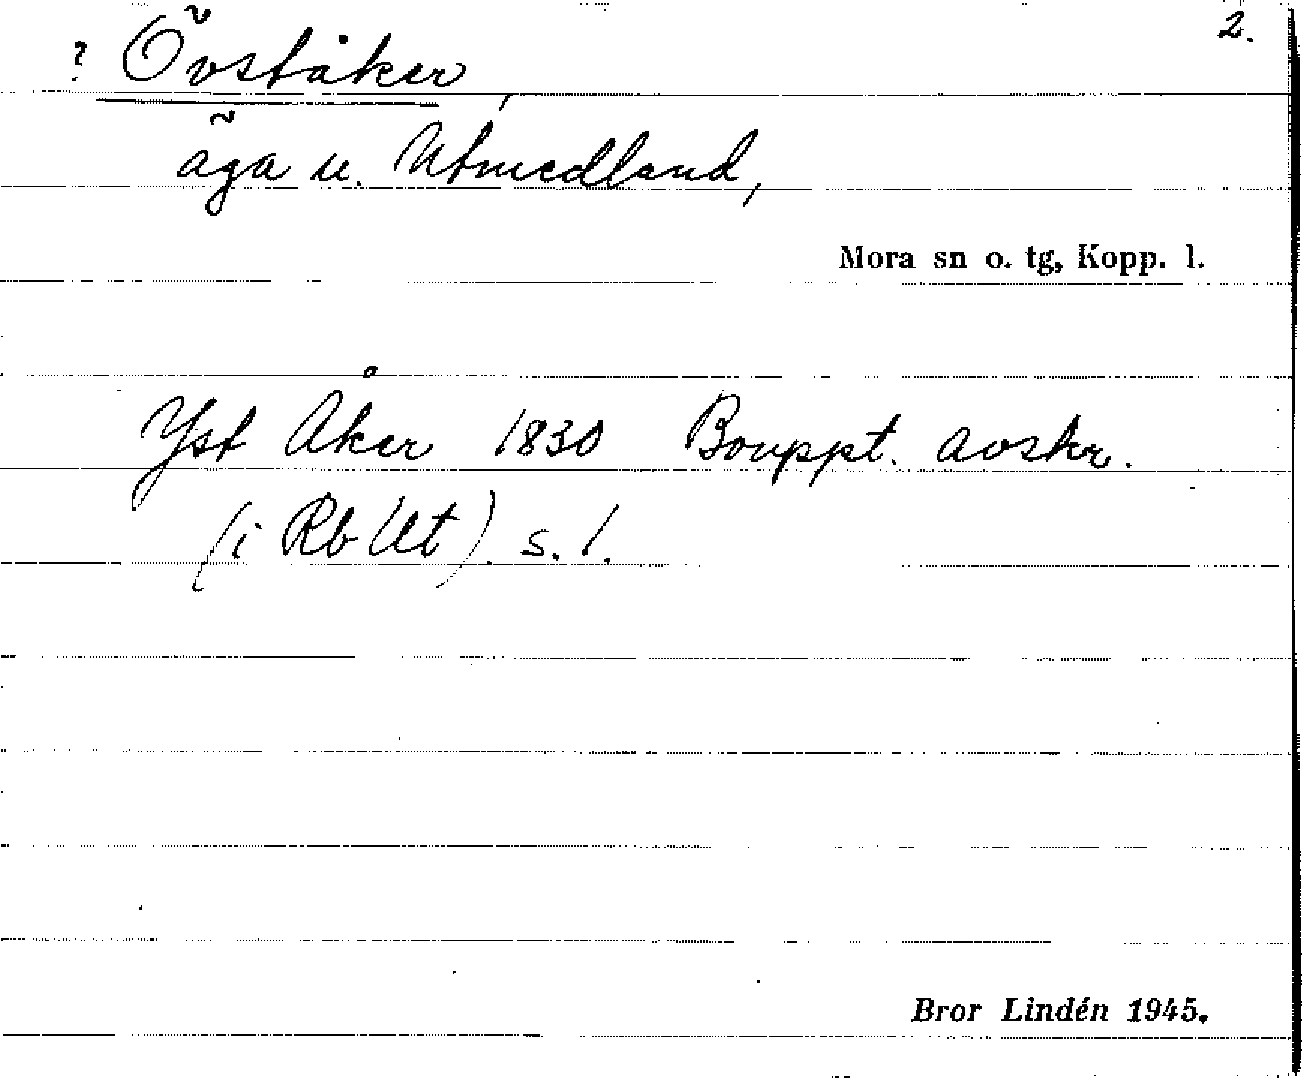 2.
? Övståker,
äga u. Utmedland,
Mora sn o. tg, Kopp. l.
Yst Åker 1830 Bouppt. avskr.
(i Rb Ut). s. 1.
Bror Lindén 1945.